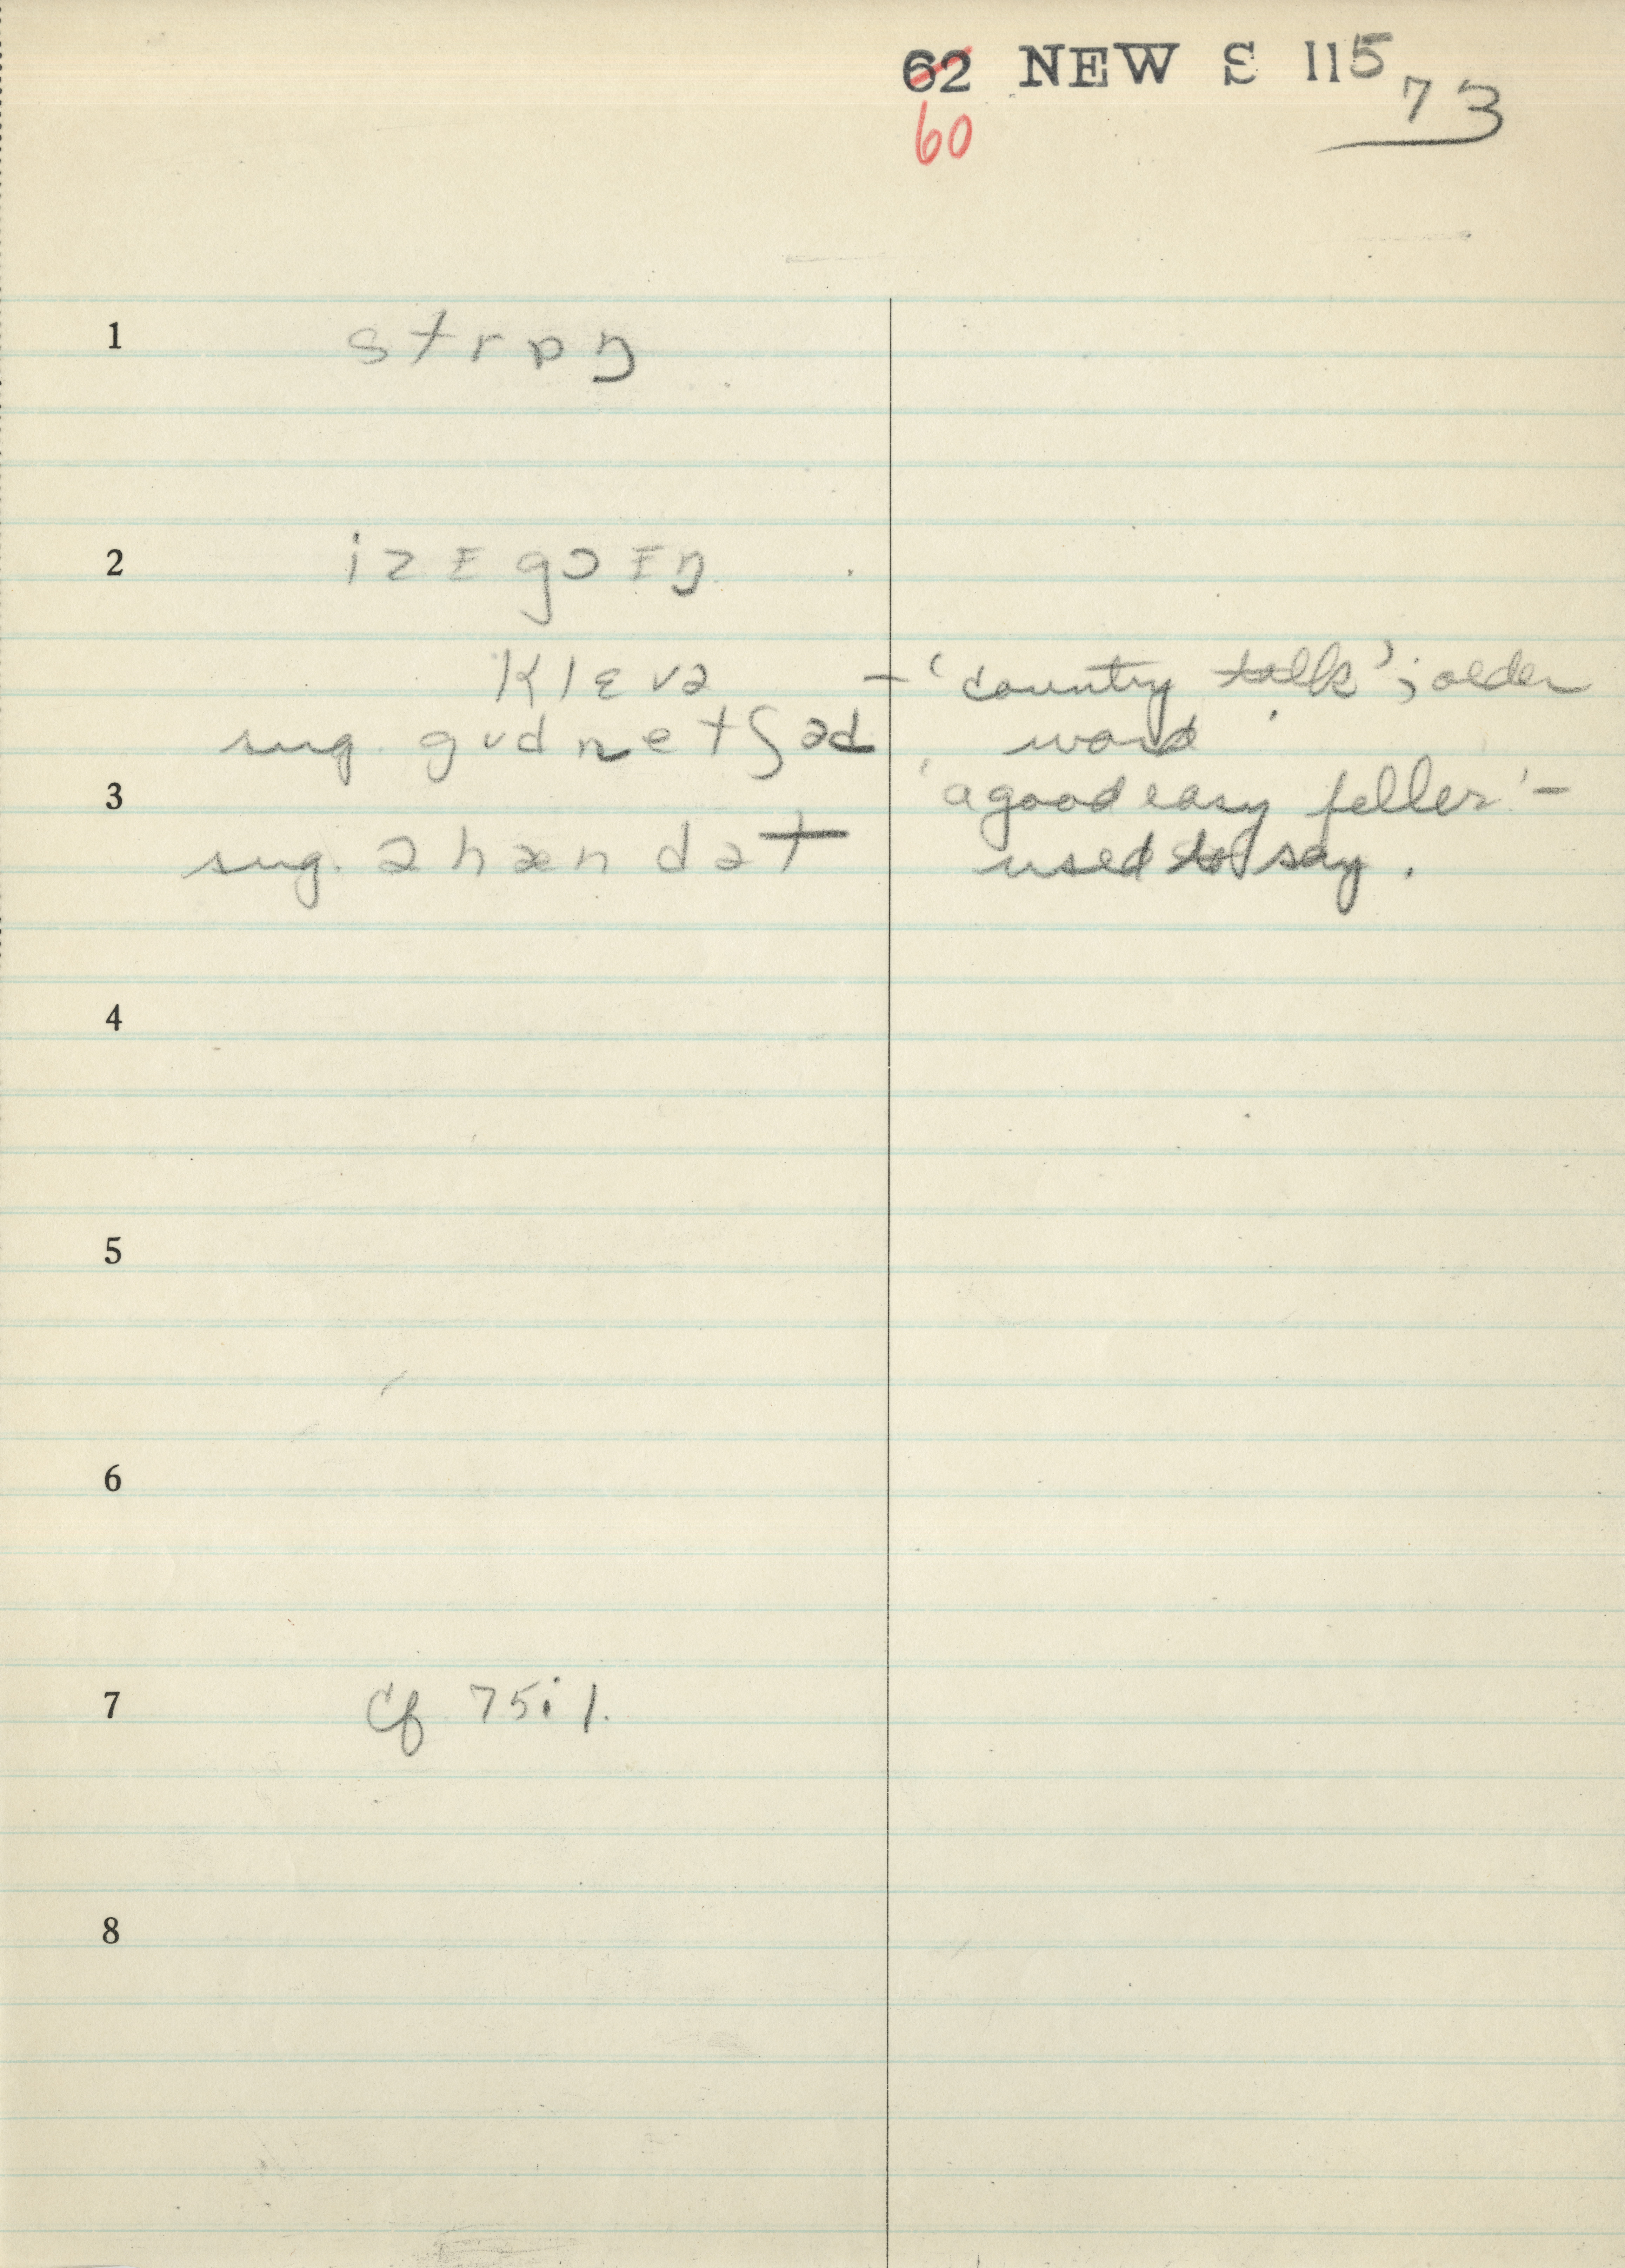 62 NEW S 115
60
73
1 strɒŋ
2 izɪgoɪŋ
klɛvə – 'country talk'; older
sug. gudnetʃəd word
3 'a good easy feller' –
sug. əhændət used to say.
4
5
6
7 Cf 75:1.
8